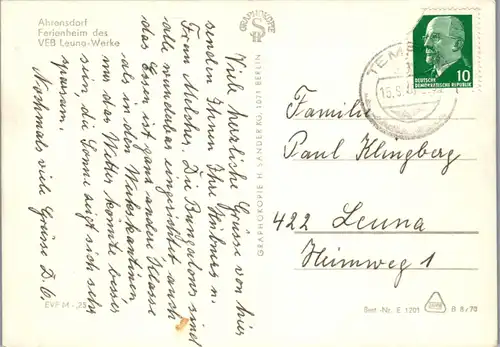 Ahrensdorf
Ferienheim des
VEB Leuna-Werke
Viele herzliche Grüsse von hier
senden Ihnen Ihre Hübners u.
Frau Melcher. Die Bungalows sind
alle wunderbar eingerichtet auch
das Essen ist ganz andere Klasse
als in den Werkskantinen
nur das Wetter könnte besser
sein, die Sonne zeigt sich sehr
sparsam.
Nochmals viele Grüsse D. O.
EVP M -,25
GRAPHOKOPIE
GRAPHOKOPIE H. SANDER KG, 1071 BERLIN
TEMP
15.9.
DEUTSCHE
DEMOKRATISCHE REPUBLIK
10
Familie
Paul Klingberg
422 Leuna
Heimweg 1
Best.-Nr. E 1201
B 8/70